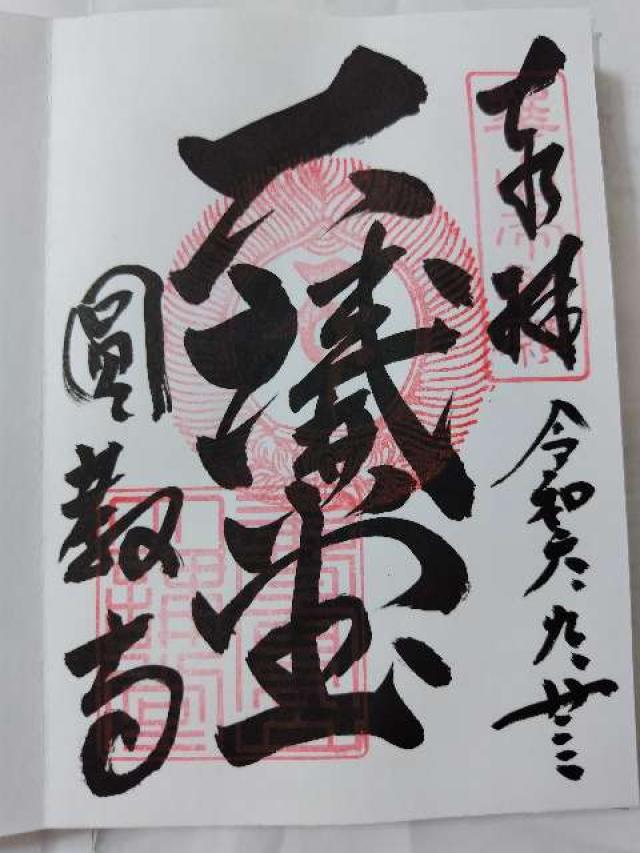 奉拝
令和六、九、廿三
大講堂
圓教寺